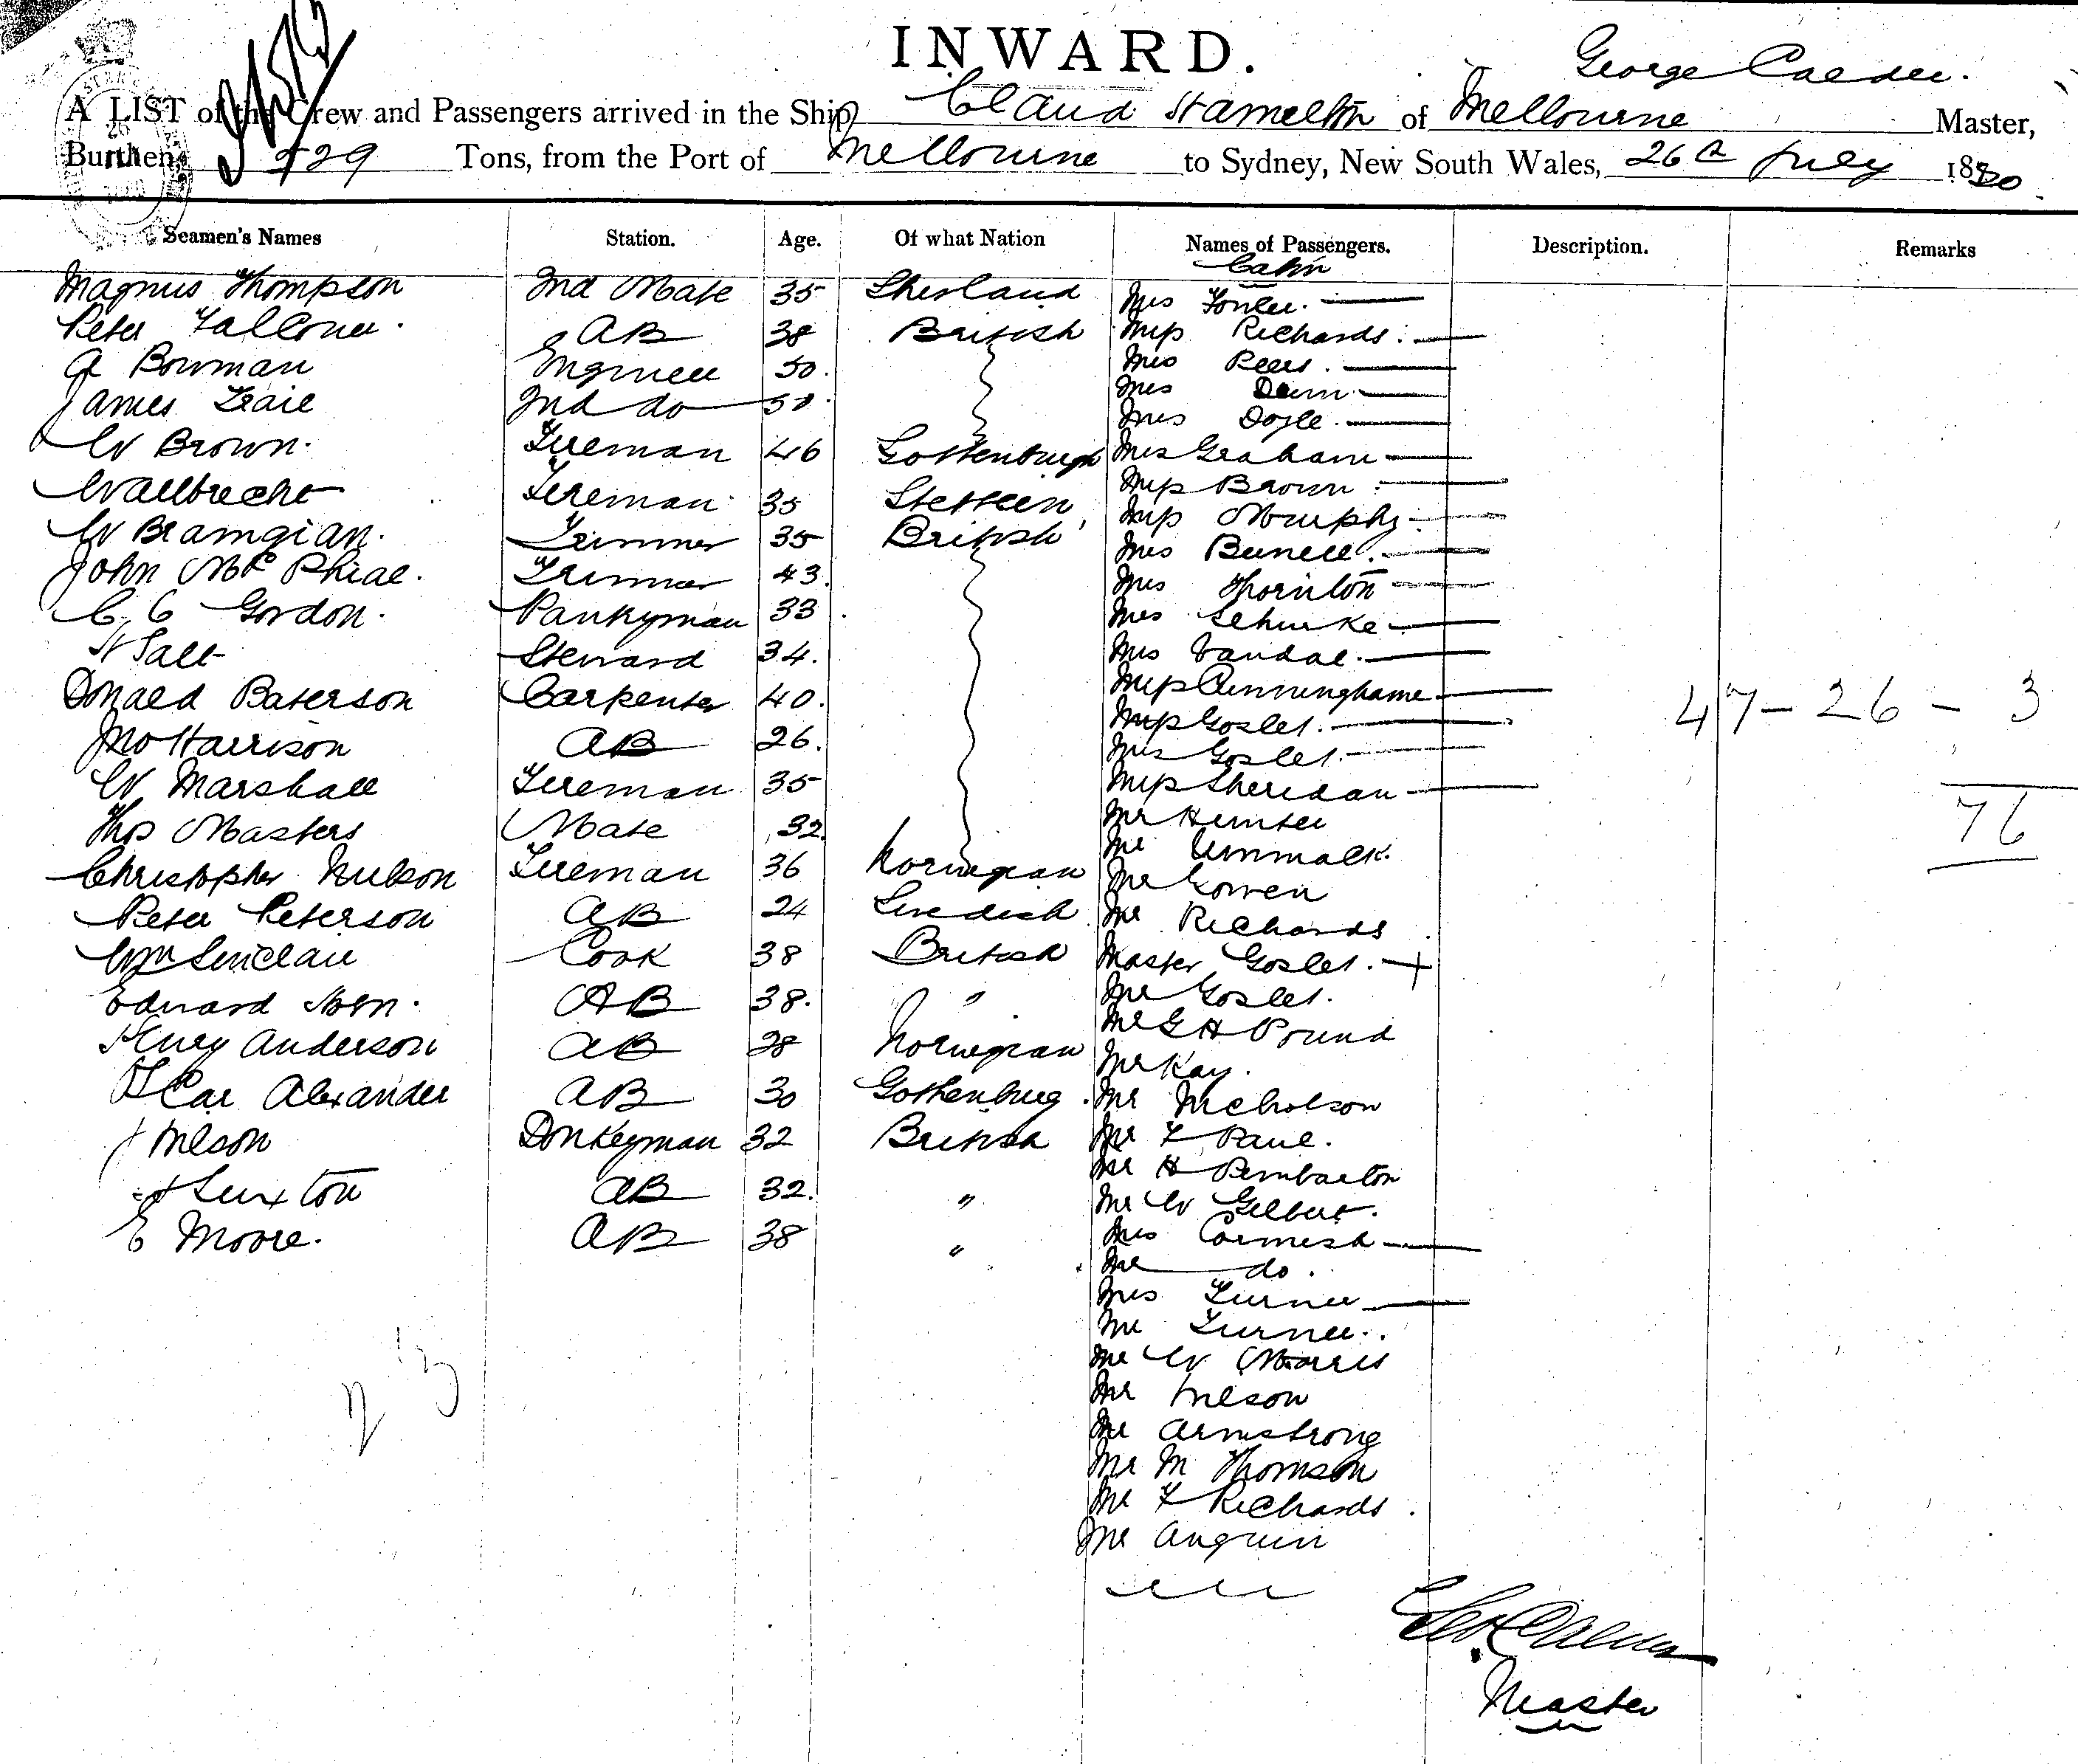 INWARD.
George Calder.
A LIST of the Crew and Passengers arrived in the Ship Claud Hamilton of Melbourne Master,
Burthen, 529 Tons, from the Port of Melbourne to Sydney, New South Wales, 26th July 1880
Seamen's Names Station. Age. Of what Nation Names of Passengers. Description. Remarks
Cabin
Magnus Thompson 2nd Mate 35 Shetland Mrs
Peter Falconer. AB 38 British Miss Richards.
A Bowman Engineer 50. Mrs
James 2nd do 50. Mrs
Mrs Doyle.
W Brown. Fireman 46 Gottenburgh Mrs Graham
Wallbrecht Fireman 35 Stetteen Miss Brown.
Miss Murphy
W Bramgian. Trimmer 35 British Mrs
John McPhial. Trimmer 43. Mrs Thornton
C. C Gordon. Pantryman 33 Mrs Schuke
Salt Steward 34. Mrs Vandal.
Donald Paterson Carpenter 40. Miss Cunninghame
Miss Goslet. 47 - 26 - 3
Jno Harrison AB 26. Mrs Goslet.
W Marshall Fireman 35 Miss Sheridan
76
Mr Hunter
Thos Masters Mate 32. Mr
Christopher Fireman 36 Norwegian Mr Gowen
Peter Peterson AB 24 Swedish Mr Richards
Wm Sinclair Cook 38 British Master Goslet.
Edward AB 38. " Mr Goslet.
Mr G H Pound
Henry Anderson AB 28 Norwegian Mr Kay.
Oscar Alexander AB 30 Gothenburg. Mr Nicholson
J Nelson Donkeyman 32 British Mr F Paul.
Mr H Pembarton
Sexton AB 32. " Mr W Gilbert.
E Moore. AB 38 " Mrs Cormish
Mr do.
Mrs Turner
Mr Turner.
Mr W Morris
Mr Nelson
Mr Armstrong
Mr M Thomson
Mr F Richards.
Mr Anguin
Geo Calder
Master